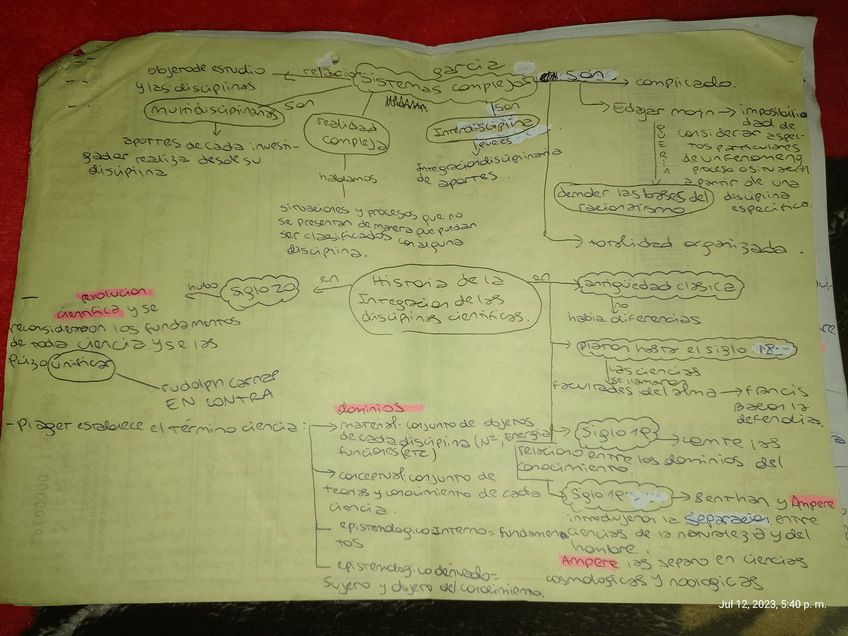 garcia
Sistemas complejos
relacio
objeto de estudio
y las disciplinas
son
multidisciplinarias
aportes de cada investi-
gador realiza desde su
disciplina
realidad
compleja
hablamos
situaciones y procesos que no
se presentan de manera que puedan
ser clasificados con alguna
disciplina.
son
Interdisciplina
Integracion disciplinaria
de aportes.
son
complicado.
Edgar morin → imposibili
dad de
considerar aspec-
tos particulares
de un fenomeno
proceso o situación
a partir de una
disciplina
especifica.
QUERIA
demoler las bases del
racionalismo
totalidad organizada.
Historia de la
Integracion de las
disciplinas cientificas.
en
siglo 20
hubo
revolucion
cientifica y se
reconsideraron los fundamentos
de toda ciencia y se las
quizo unificar
rudolph carnap
EN CONTRA
en
antigüedad clasica
no
habia diferencias
platon hasta el siglo 18
las ciencias
se llamaron
facultades del alma → francis
bacon la
defendia.
Siglo 19 → comte las
relaciono entre los dominios del
conocimiento.
Siglo 19 → Benthan y Ampere
introdujeron la separacion entre
ciencias de la naturaleza y del
hombre.
Ampere las separo en ciencias
cosmologicas y noologicas
- Piaget establece el término ciencia:
dominios
material: conjunto de objetos
de cada disciplina (Nº, Energia,
funciones, etc)
conceptual: conjunto de
teorias y conocimiento de cada
ciencia.
epistemologico Interno = fundamen
tos
epistemologico derivado =
Sujeto y objeto del conocimiento.
Jul 12, 2023, 5:40 p. m.